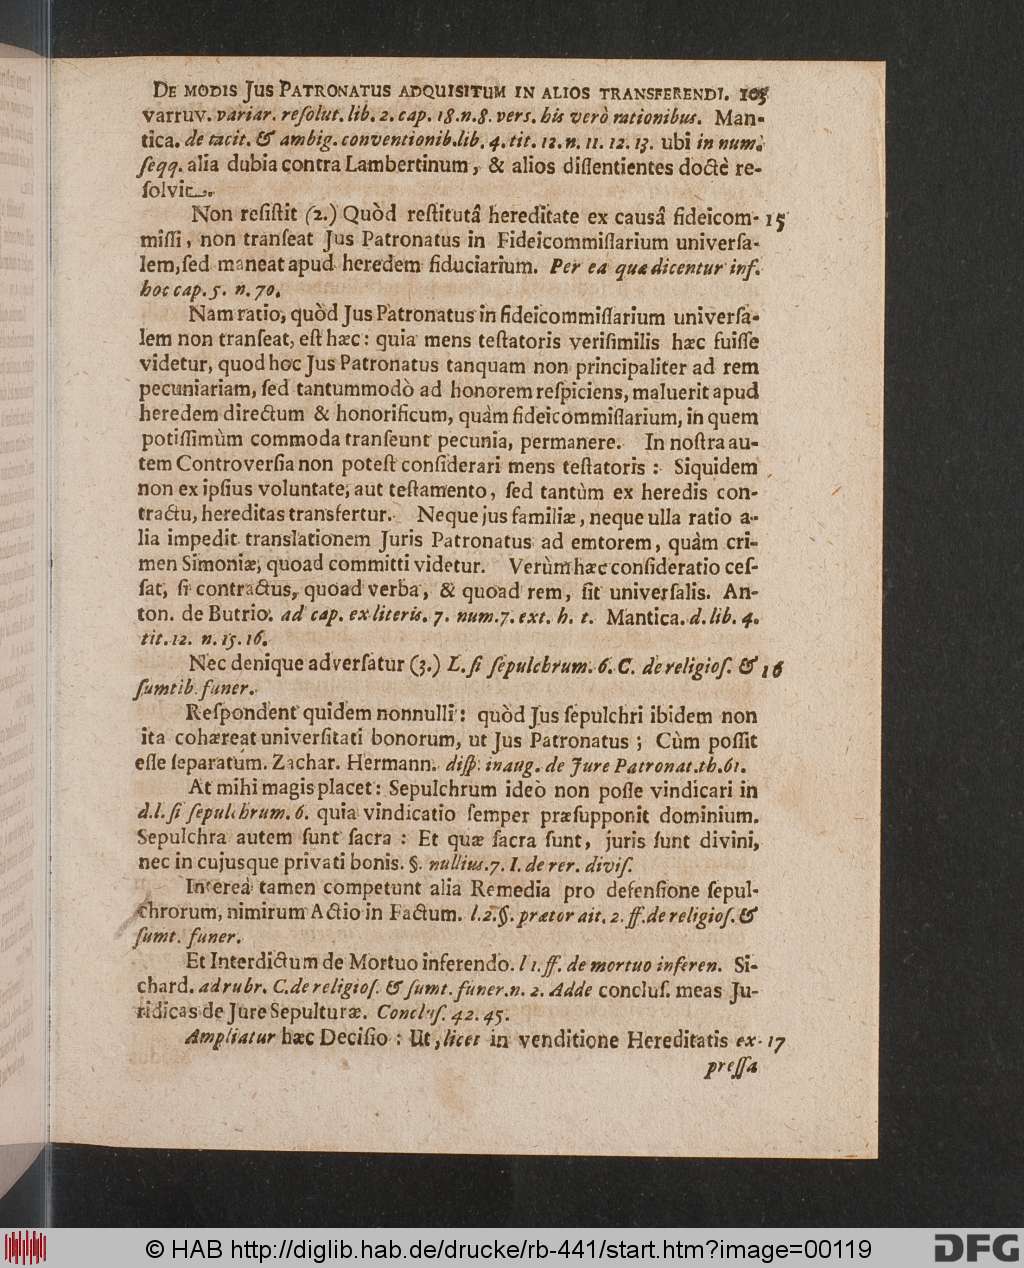 DE MODIS JUS PATRONATUS ADQUISITUM IN ALIOS TRANSFERENDI. 105
varruv. variar. reſolut. lib. 2. cap. 18. n. 8. vers. his verò rationibus. Man-
tica. de tacit. & ambig. conventionib. lib. 4. tit. 12. n. 11. 12. 13. ubi in num.
ſeqq. alia dubia contra Lambertinum, & alios diſſentientes doctè re-
ſolvit.
Non reſiſtit (2.) Quòd reſtitutâ hereditate ex causâ fideicom- 15
miſſi, non tranſeat Jus Patronatus in Fideicommiſſarium univerſa-
lem, ſed maneat apud heredem fiduciarium. Per ea quæ dicentur inf.
hoc cap. 5. n. 70.
Nam ratio, quòd Jus Patronatus in fideicommiſſarium univerſa-
lem non tranſeat, eſt hæc: quia mens teſtatoris veriſimilis hæc fuiſſe
videtur, quod hoc Jus Patronatus tanquam non principaliter ad rem
pecuniariam, ſed tantummodò ad honorem reſpiciens, maluerit apud
heredem directum & honorificum, quàm fideicommiſſarium, in quem
potiſſimùm commoda tranſeunt pecunia, permanere. In noſtra au-
tem Controverſia non poteſt conſiderari mens teſtatoris: Siquidem
non ex ipſius voluntate, aut teſtamento, ſed tantùm ex heredis con-
tractu, hereditas transfertur. Neque jus familiæ, neque ulla ratio a-
lia impedit translationem Juris Patronatus ad emtorem, quàm cri-
men Simoniæ, quoad committi videtur. Verùm hæc conſideratio ceſ-
ſat, ſi contractus, quoad verba, & quoad rem, ſit univerſalis. An-
ton. de Butrio. ad cap. ex literis. 7. num. 7. ext. h. t. Mantica. d. lib. 4.
tit. 12. n. 15. 16.
Nec denique adverſatur (3.) L. ſi ſepulchrum. 6. C. de religioſ. & 16
ſumtib. funer.
Reſpondent quidem nonnulli: quòd Jus ſepulchri ibidem non
ita cohæreat univerſitati bonorum, ut Jus Patronatus; Cùm poſſit
eſſe ſeparatum. Zachar. Hermann. diſp. inaug. de Jure Patronat. th. 61.
At mihi magis placet: Sepulchrum ideò non poſſe vindicari in
d. l. ſi ſepulchrum. 6. quia vindicatio ſemper præſupponit dominium.
Sepulchra autem ſunt ſacra: Et quæ ſacra ſunt, juris ſunt divini,
nec in cujusque privati bonis. §. nullius. 7. I. de rer. diviſ.
Intereà tamen competunt alia Remedia pro defenſione ſepul-
chrorum, nimirum Actio in Factum. l. 2. §. prætor ait. 2. ff. de religioſ. &
ſumt. funer.
Et Interdictum de Mortuo inferendo. l 1. ff. de mortuo inferen. Si-
chard. ad rubr. C. de religioſ. & ſumt. funer. n. 2. Adde concluſ. meas Ju-
ridicas de Jure Sepulturæ. Concluſ. 42. 45.
Ampliatur hæc Deciſio: Ut, licet in venditione Hereditatis ex- 17
preſſa
© HAB http://diglib.hab.de/drucke/rb-441/start.htm?image=00119
DFG